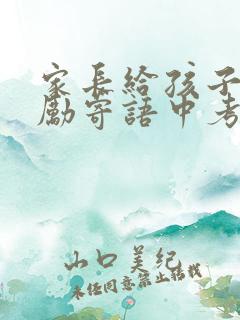 家長給孩子
勵寄語中考
山口美纪
未经同意禁止转载